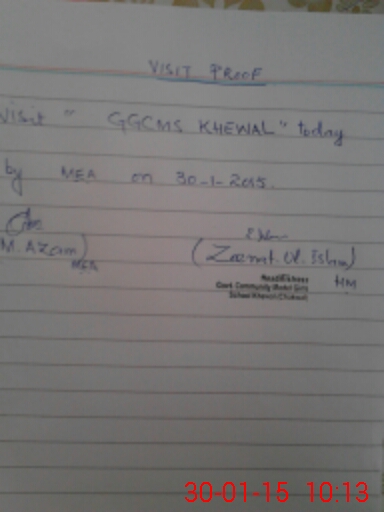 VISIT PROOF
Visit " GGCMS KHEWAL" today
by MEA on 30-1-2015.
M. Azam)
MEA
(Zeenat. Ul. Islam)
HM
Headmistress
Govt. Community Model Girls
School Khewal (Chakwal)
30-01-15 10:13